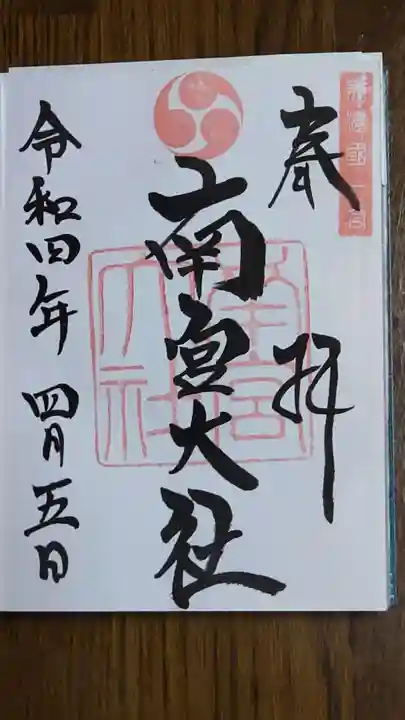 美濃國一宮
奉拝
南宮大社
南宮大社
令和四年 四月五日